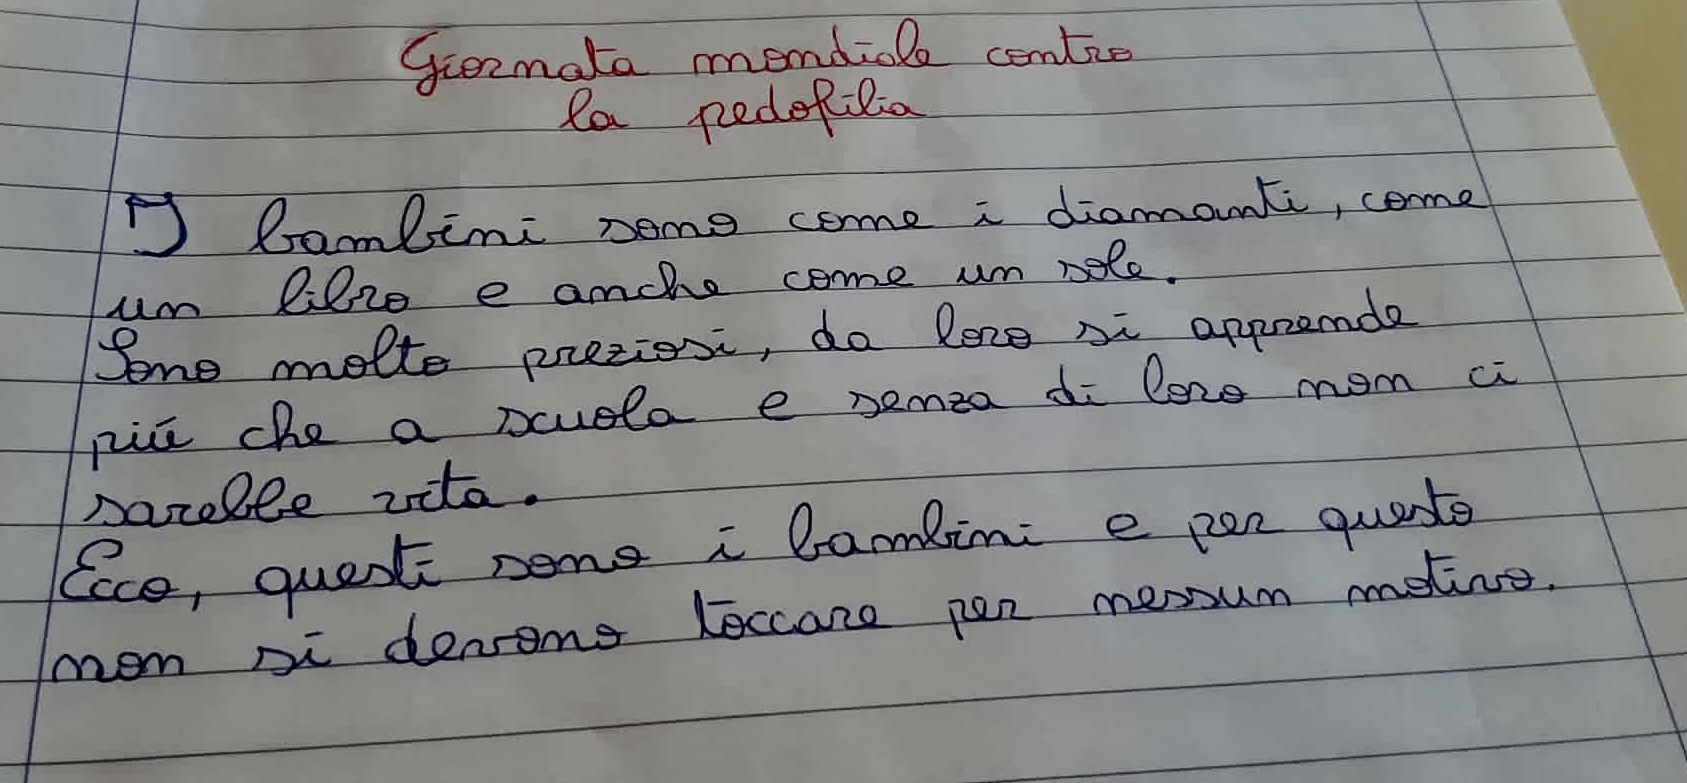 Giornata mondiale contro
la pedofilia
I bambini sono come i diamanti, come
un libro e anche come un sole.
Sono molto preziosi, da loro si apprende
più che a scuola e senza di loro non ci
sarebbe vita.
Ecco, questi sono i bambini e per questo
non si devono toccare per nessun motivo.